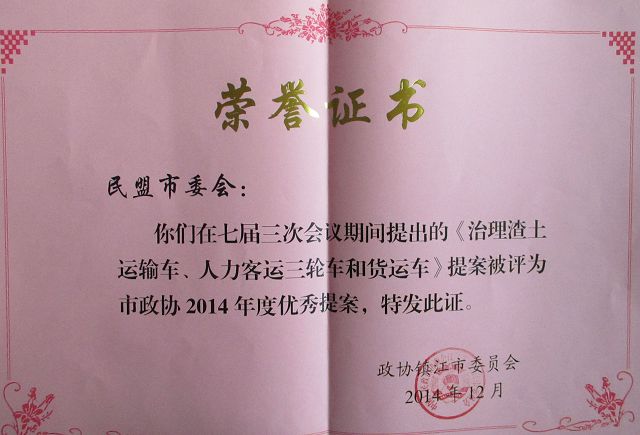 荣誉证书
民盟市委会：
你们在七届三次会议期间提出的《治理渣土
运输车、人力客运三轮车和货运车》提案被评为
市政协 2014 年度优秀提案，特发此证。
政协镇江市委员会
2014 年 12 月